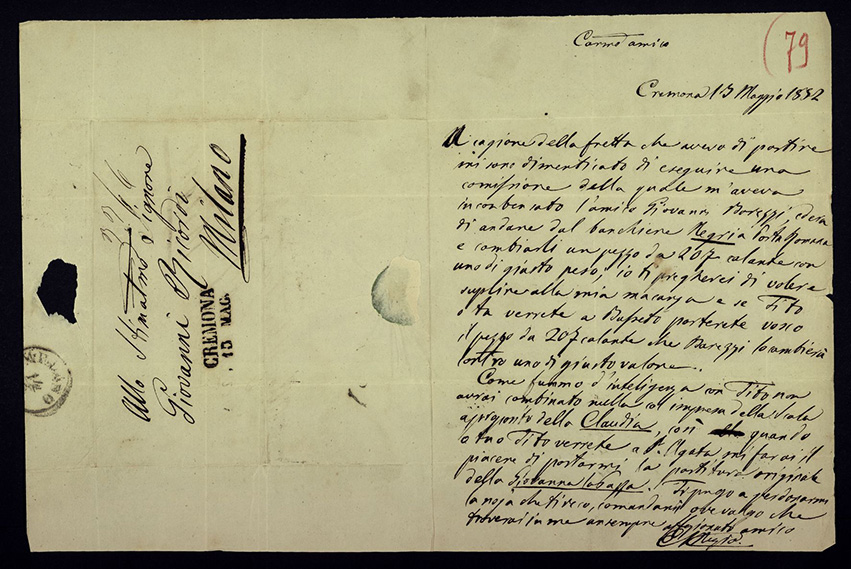 79
Carmo amico
Cremona 15 Maggio 1852
A cagione della fretta che avevo di partire
mi sono dimenticato di eseguire una
comissione della quale m'aveva
incombenzato l'amico Giovanni Barezzi, ed era
di andare dal banchiere Negri a Porta Romana
e cambiarli un pezzo da 20 f calante con
uno di giusto peso, io ti pregherei di volere
suplire alla mia mancanza e se Tito
o tu verrete a Busseto porterete vosco
il pezzo da 20 f calante che Barezzi lo cambierà
contro uno di giusto valore.
Come fummo d'inteligenza con Tito non
avrai combinato nulla col impresa della Scala
a proposito della Claudia, così quando
o tu o Tito verrete a St. Agata, mi farai il
piacere di portarmi la partitura originale
della Giovanna la Pazza. Ti prego a perdonarmi
la noja che ti reco, comandami ove valgo che
troverai in me un sempre affezionato amico
Allo Stimatmo Signore
Giovanni Ricordi
Milano
CREMONA
15 MAG.